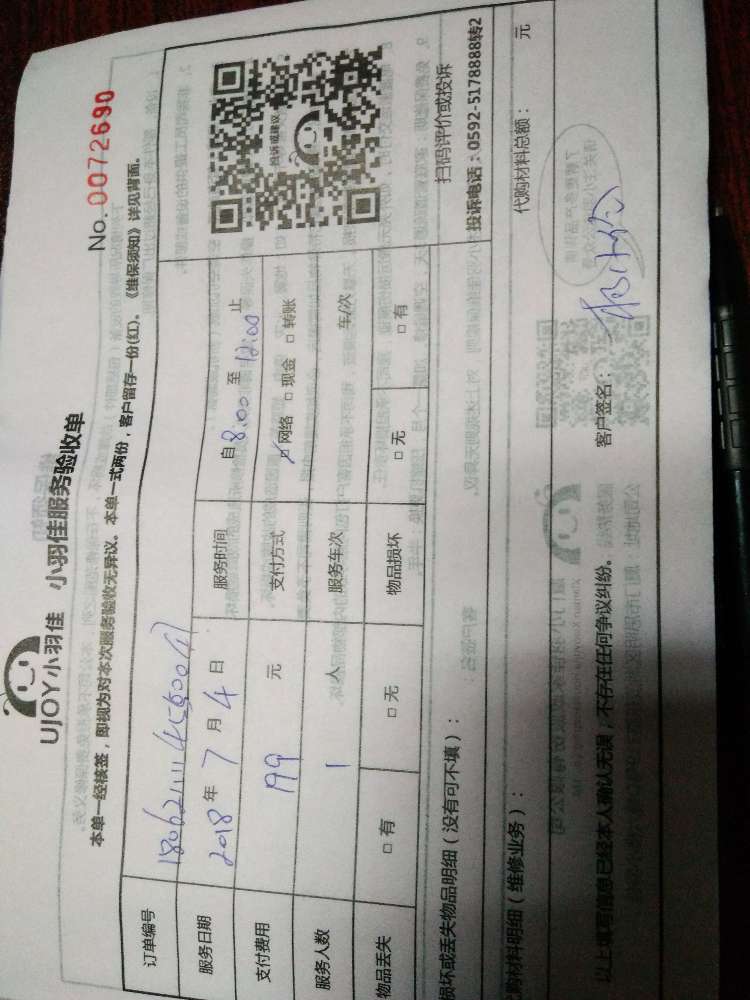 UJOY小羽佳 小羽佳服务验收单
No.0072690
本单一经核签，即视为对本次服务验收无异议。本单一式两份，客户留存一份(红)。《维保须知》详见背面。
订单编号
服务日期 2018年7月4日 服务时间 自8:00至12:00止
支付费用 199元 支付方式 □网络 □现金 □转账
服务人数 1人 服务车次 车/次
物品丢失 □有 □无 物品损坏 □无 □有
投诉或建议
扫码评价或投诉
投诉电话：0592-5178888转2
损坏或丢失物品明细（没有可不填）：
购材料明细（维修业务）： 代购材料总额： 元
以上填写信息已经本人确认无误，不存在任何争议纠纷。 客户签名：